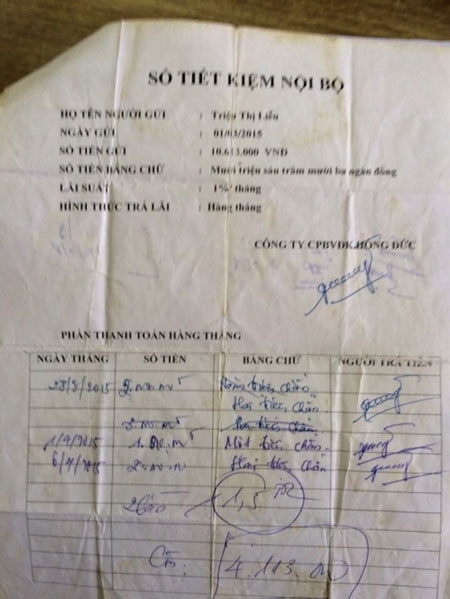 SỔ TIẾT KIỆM NỘI BỘ
HỌ TÊN NGƯỜI GỬI : Triệu Thị Liễu
NGÀY GỬI : 01/03/2015
SỐ TIỀN GỬI : 10.613.000 VND
SỐ TIỀN BẰNG CHỮ : Mười triệu sáu trăm mười ba ngàn đồng
LÃI SUẤT : 1%/ tháng
HÌNH THỨC TRẢ LÃI : Hàng tháng
CÔNG TY CPBVĐK HỒNG ĐỨC
PHẦN THANH TOÁN HÀNG THÁNG
NGÀY THÁNG SỐ TIỀN BẰNG CHỮ NGƯỜI TRẢ TIỀN
28/8/2015
Hai triệu chẵn
Một triệu chẵn
Hai triệu chẵn
1,5
4.113.